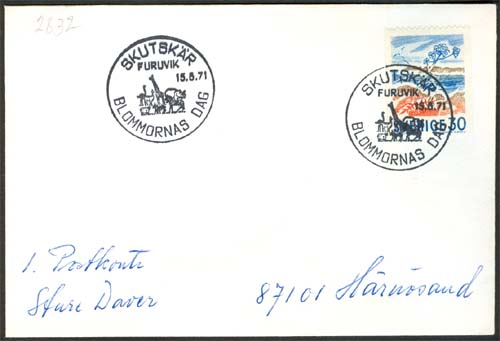 2632
SKUTSKÄR
FURUVIK
15.8.71
BLOMMORNAS DAG
SKUTSKÄR
FURUVIK
15.8.71
BLOMMORNAS DAG
SVERIGE 30
1. Postkonto
Sture Daver
87101 Härnösand